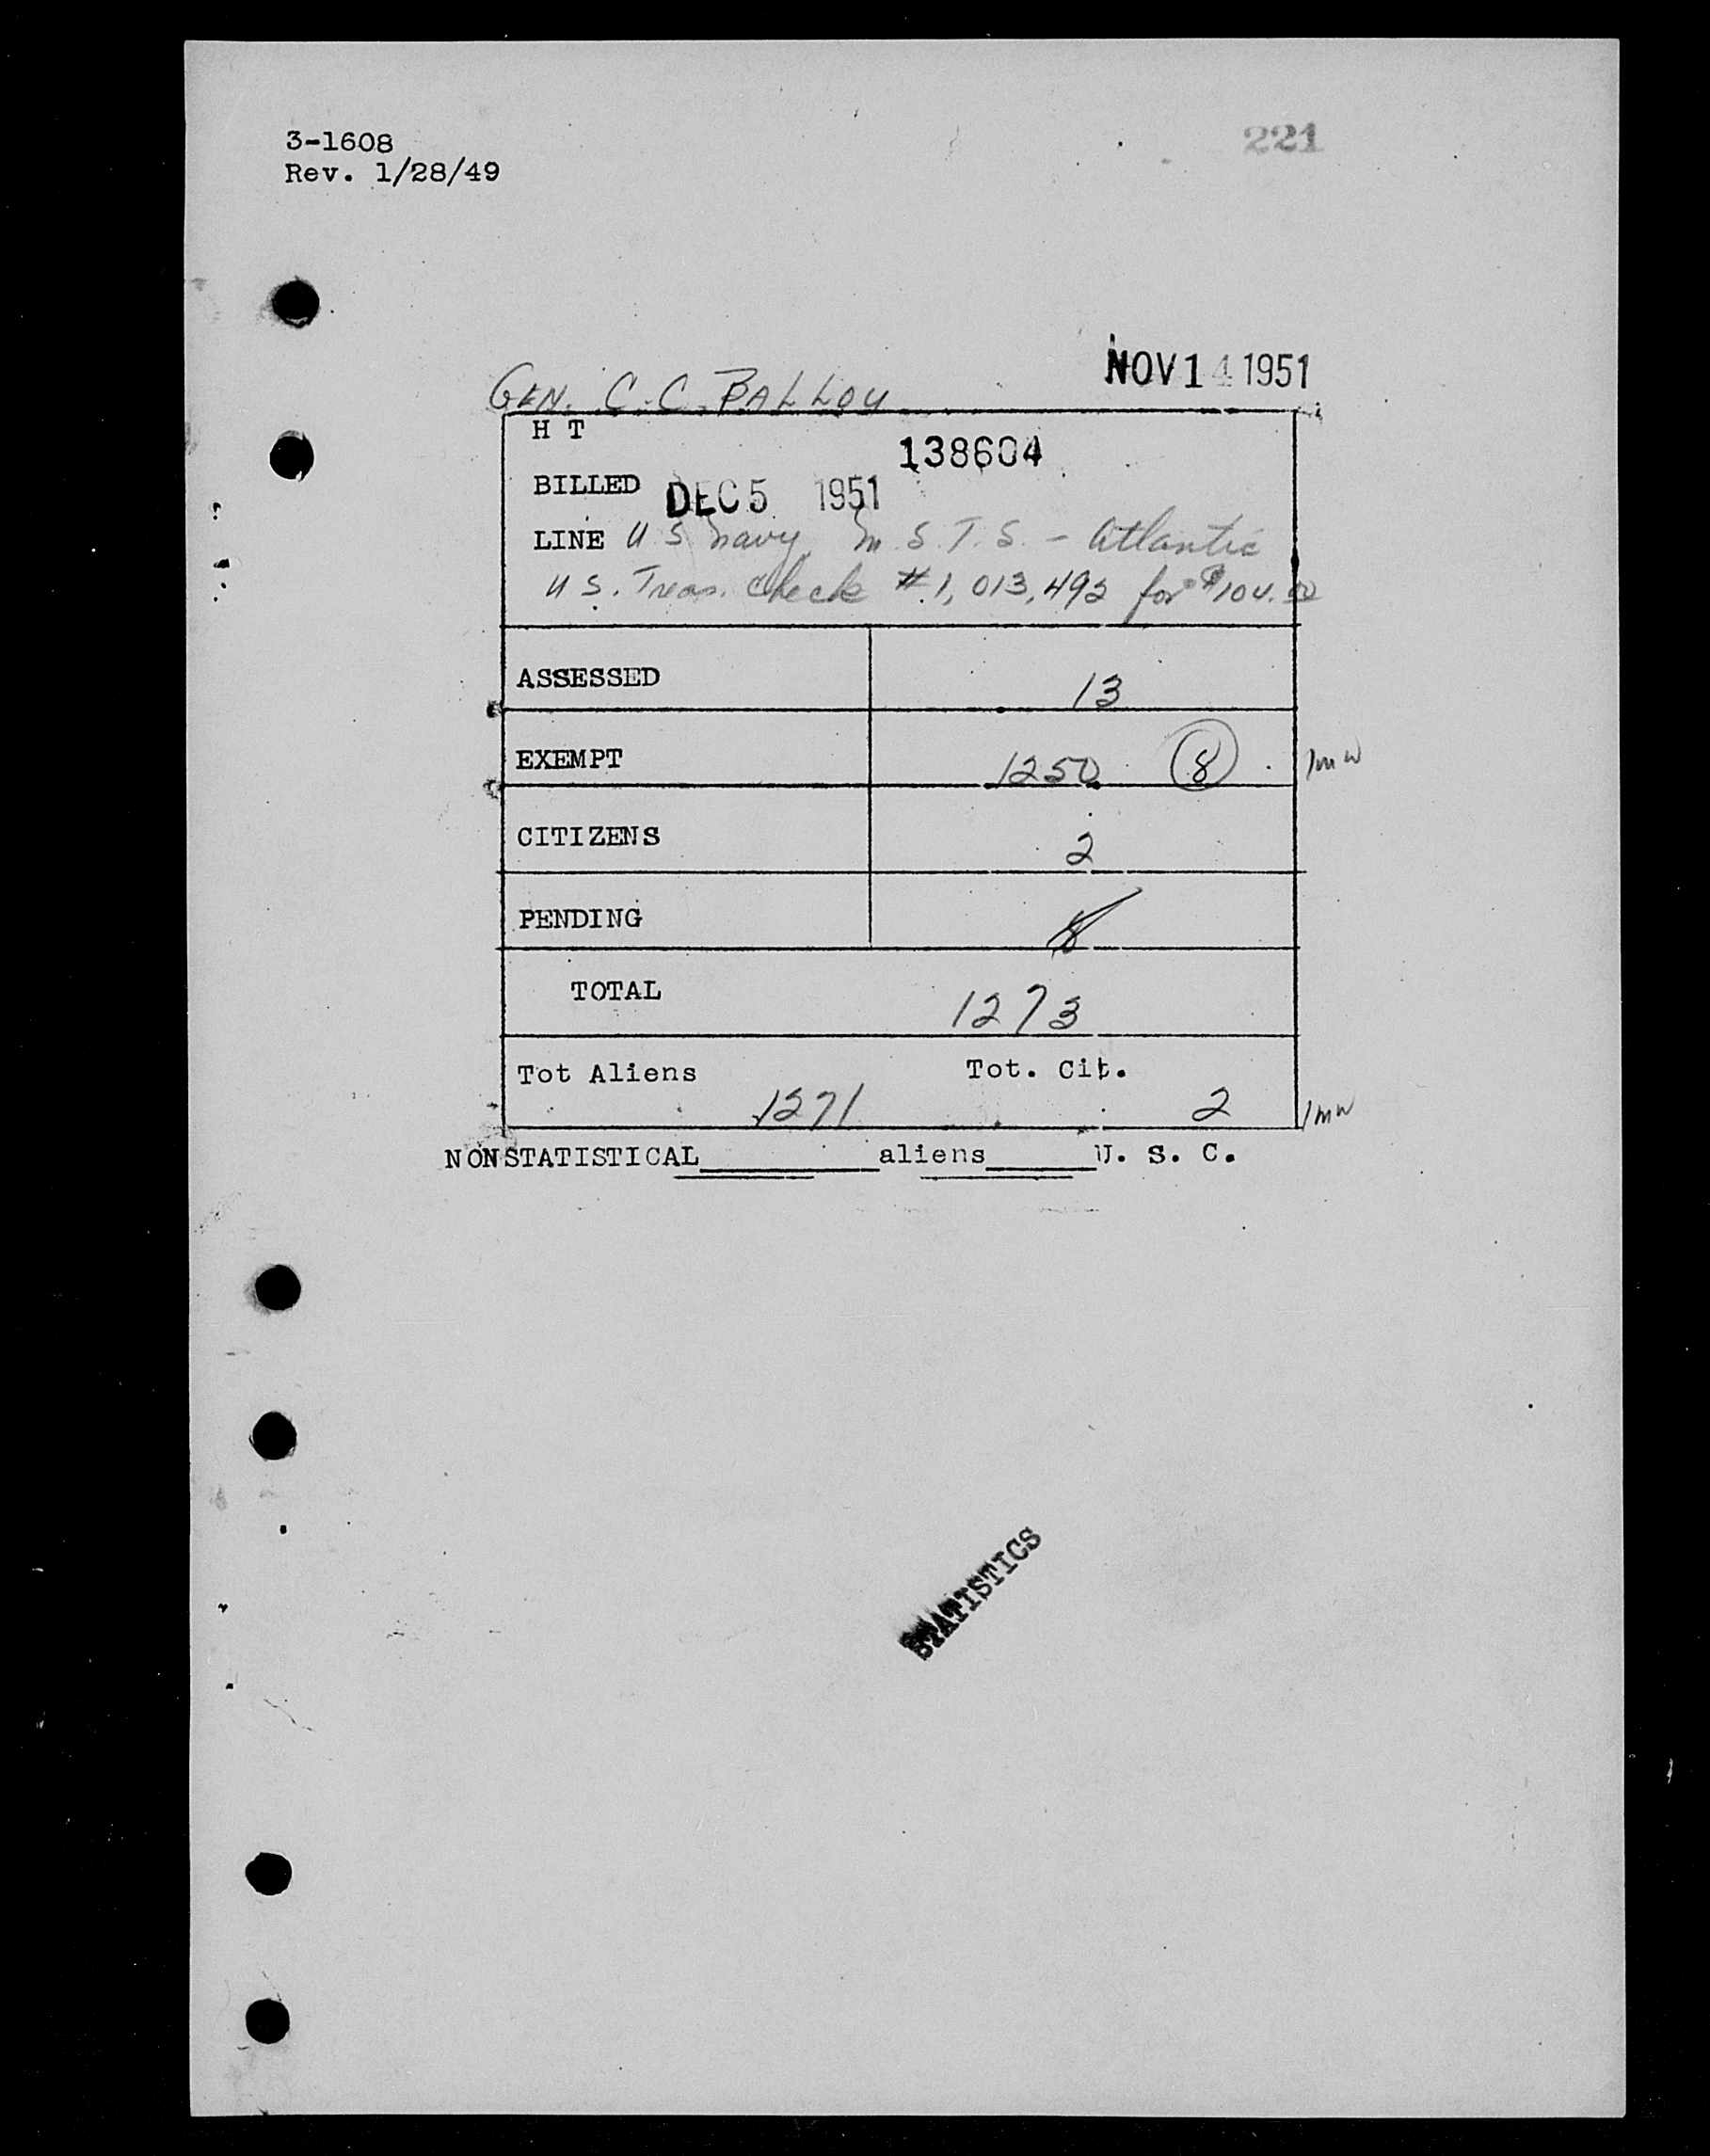 3-1608
Rev. 1/28/49
221
NOV 14 1951
GEN. C. C. BALLOU
H T
138604
BILLED DEC 5 1951
LINE U S Navy, M. S. T. S. - Atlantic
U S. Treas. Check # 1,013,492 for $104.00
ASSESSED 13
EXEMPT 1250 8 mw
CITIZENS 2
PENDING 8
TOTAL 1273
Tot Aliens Tot. Cit.
1271 2 mw
NONSTATISTICAL aliens U. S. C.
STATISTICS